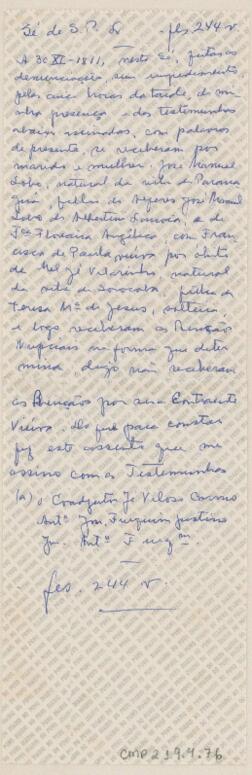 Sé de S.P. L. fls 244 v.
A 30 XI-1811, nesta Sé, feitas as
denunciações, sem impedimento
pelas cinco horas da tarde, de mi-
nha presença e das testemunhas
abaixo assinadas, com palavras
de presente se receberam por
marido e mulher. José Manuel
Lobo, natural da vila de Parana
guá, filho do Alferes José Manuel
Lobo de e de
Fca Floriana Angélica, com Fran-
cisca de Paula, viuva por óbito
de Mel Jé Vilarinho, natural
da vila de Sorocaba filha de
Teresa Ma de Jesus, solteira,
e logo receberam as Bençãos
Nupciais na forma que deter
mina, digo não receberam
as Bençãos por ser a Contraente
Viuva. Do que para constar
fiz este assento que me
assino com as Testemunhas
(a) o Coadjutor Je Veloso Carmo
Anto Jm. Furquim Justino
Jm. Anto Furqm.
fls. 244 v.
CMP 2.19.4.76